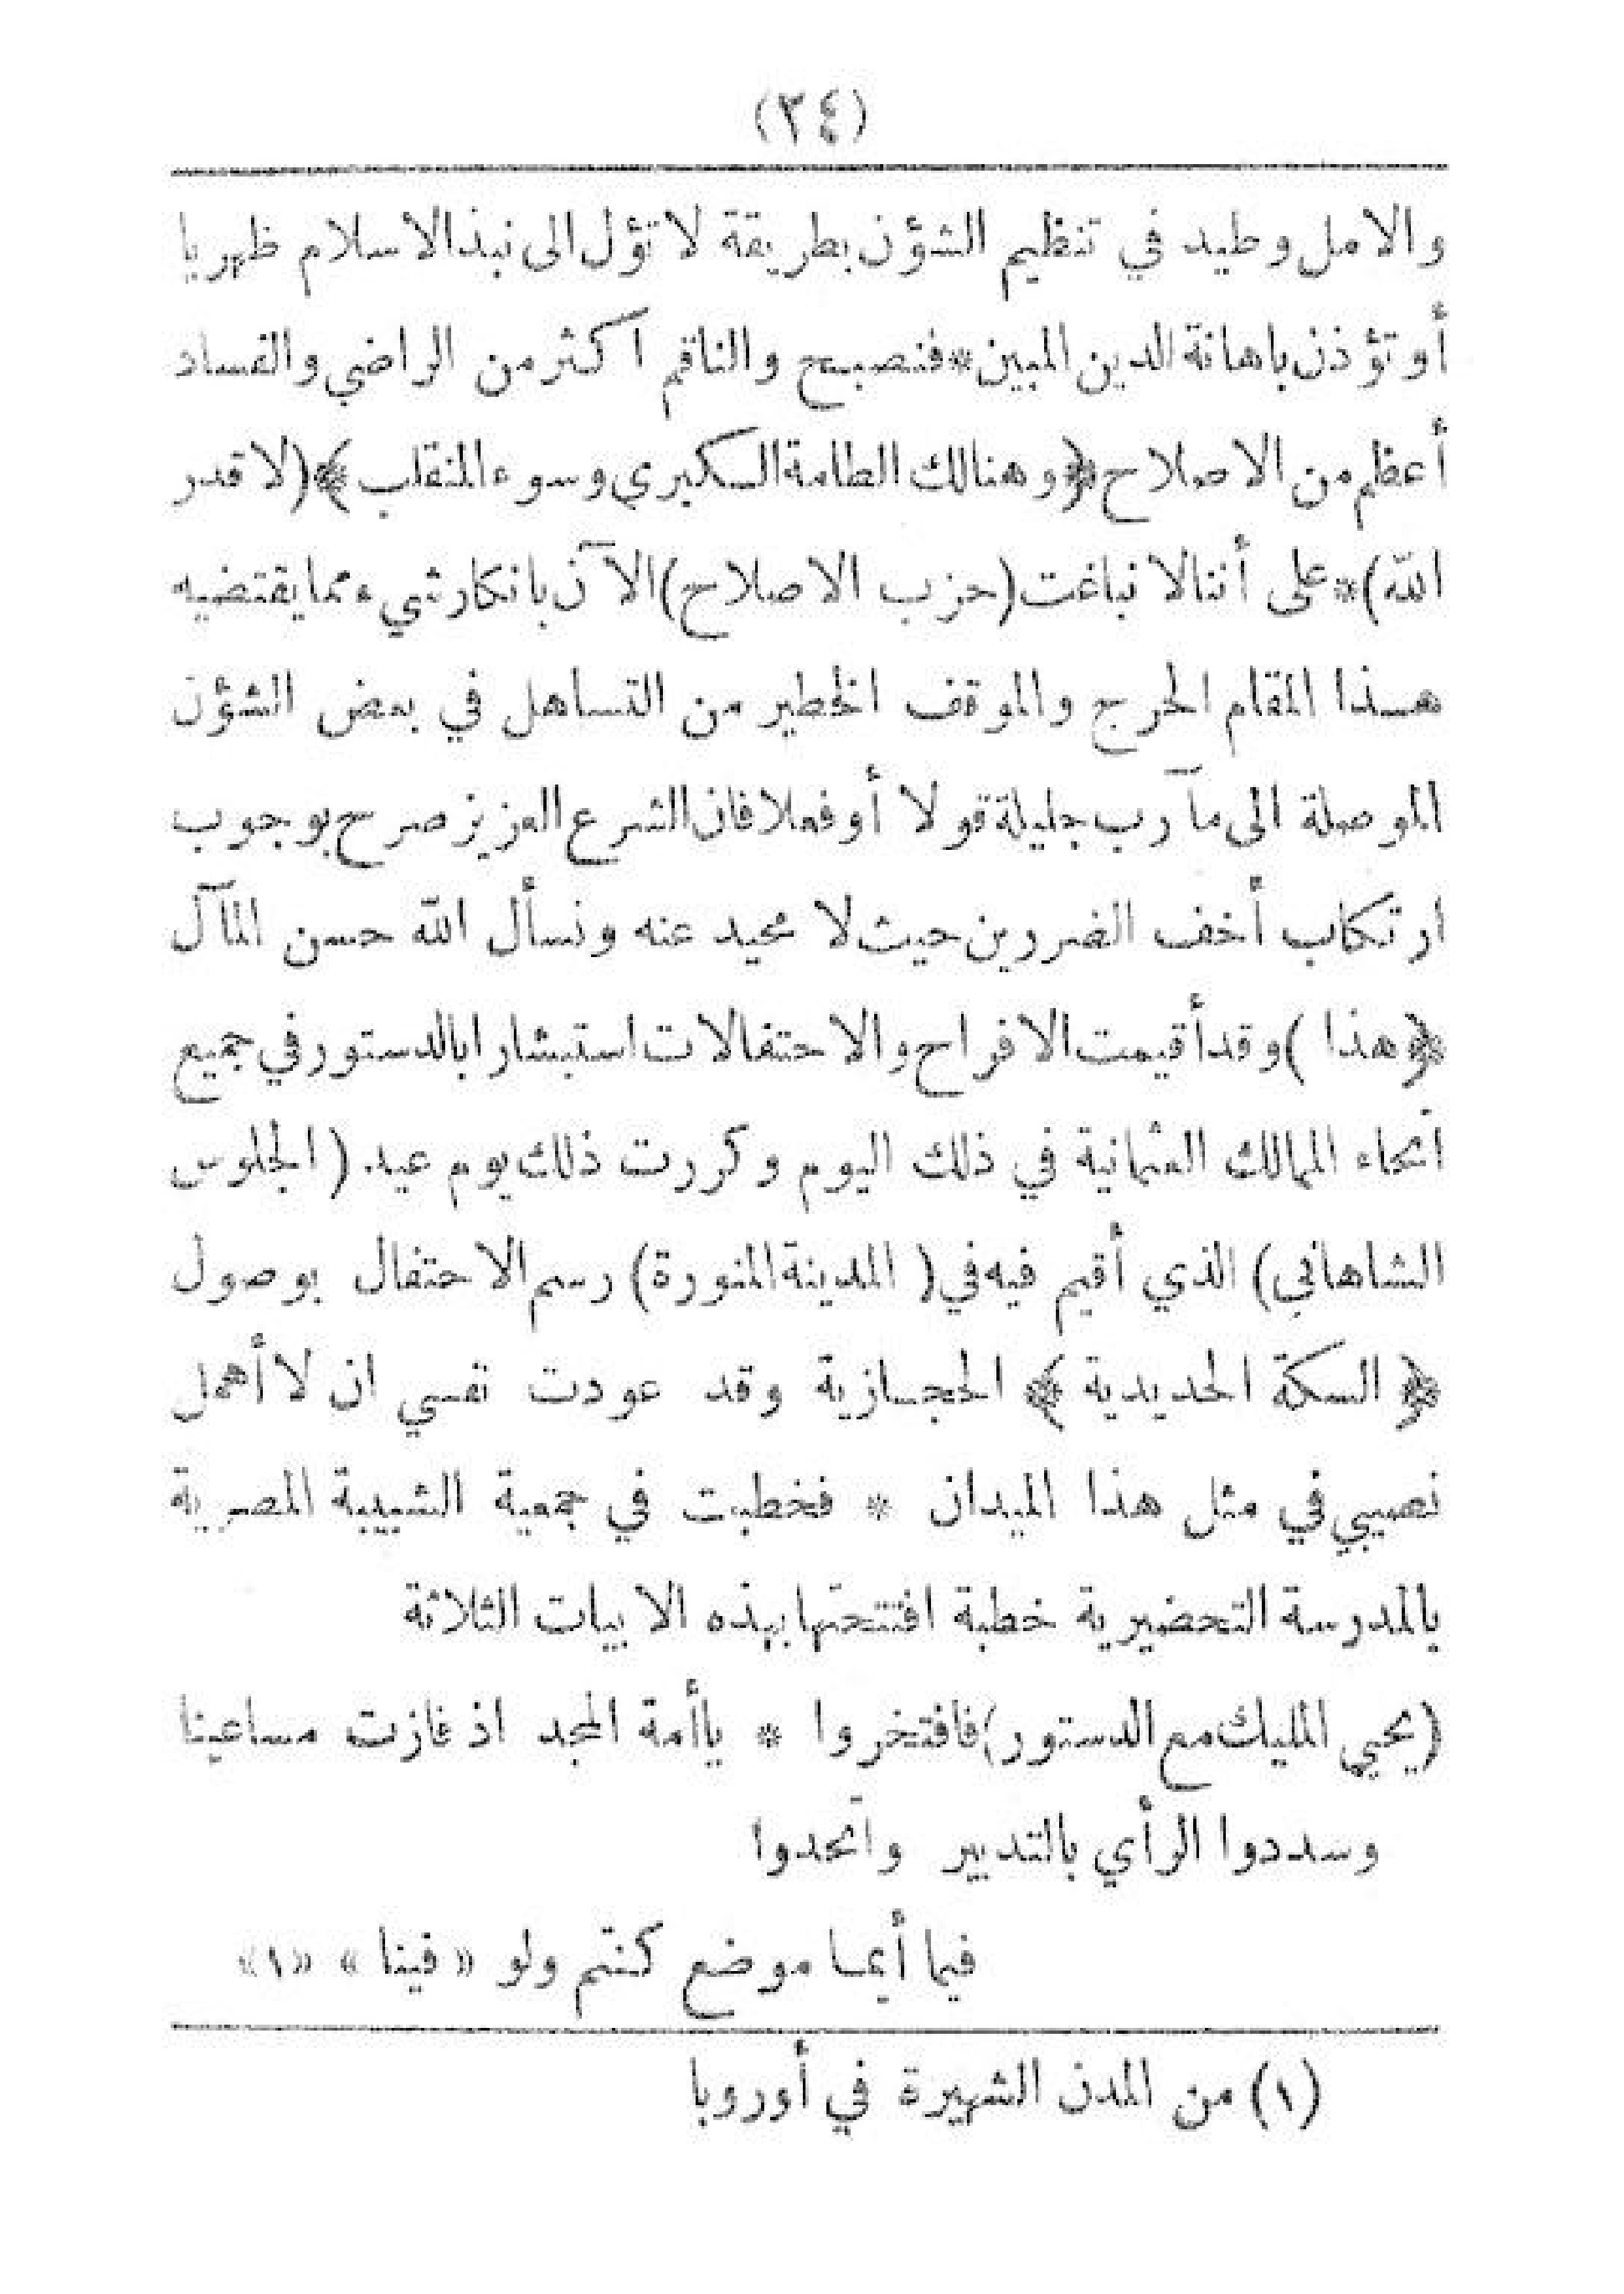 (٣٤)
والامل وطيد في تنظيم الشؤن بطريقة لا تؤل الى نبذ الاسلام ظهريا
أو تؤذن باهانة الدين المبين * فنصبح والناقم اكثر من الراضي والفساد
أعظم من الاصلاح ﴿وهنالك الطامة الكبرى وسوء المنقلب﴾ (لا قدر
الله) * على أننا لا نباغت (حزب الاصلاح) الآن بانكار شيء مما يقتضيه
هذا المقام الحرج والموقف الخطير من التساهل في بعض الشؤن
الموصلة الى مآرب جليلة قولا أو فعلا فان الشرع العزيز صرح بوجوب
ارتكاب أخف الضررين حيث لا محيد عنه ونسأل الله حسن المآل
﴿هذا) وقد أقيمت الافراح والاحتفالات استبشارا بالدستور في جميع
انحاء الممالك العثمانية في ذلك اليوم وكررت ذلك يوم عيد. (الجلوس
الشاهاني) الذي أقيم فيه في (المدينة المنورة) رسم الاحتفال بوصول
﴿السكة الحديدية﴾ الحجازية وقد عودت نفسي ان لا أهمل
نصيبي في مثل هذا الميدان * فخطبت في جمعية الشبيبة المصرية
بالمدرسة التحضيرية خطبة افتتحتها بهذه الابيات الثلاثة
(يحيي المليك مع الدستور) فافتخروا * ياأمة المجد اذ فازت مساعينا
وسددوا الرأي بالتدبير واتحدوا
فيما أيما موضع كنتم ولو «فينا» «١»
(١) من المدن الشهيرة في أوروبا